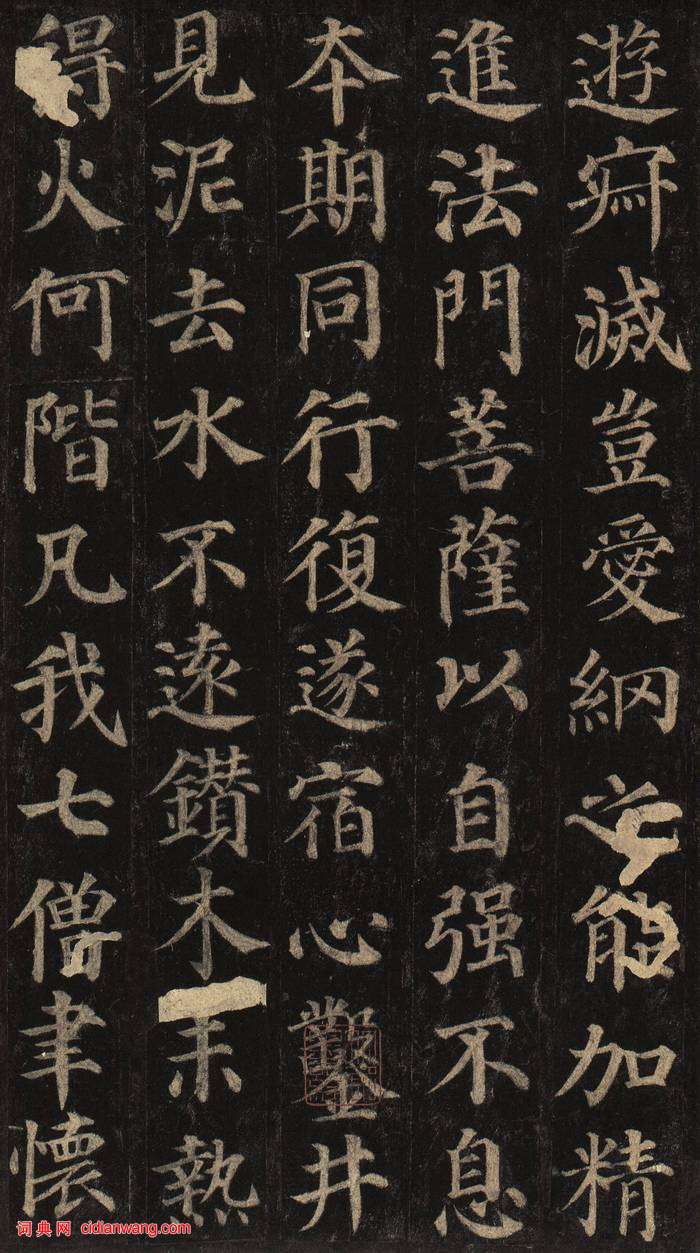 遊寂滅豈愛網之能加精
進法門菩薩以自强不息
本期同行復遂宿心鑿井
見泥去水不遠鑽木未熱
得火何階凡我七僧聿懷
词典网 cidianwang.com